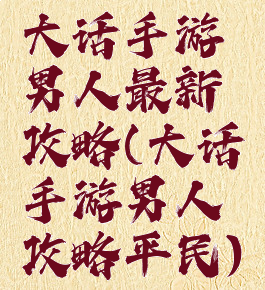 大话手游
男人最新
攻略(大话
手游男人
攻略平民)